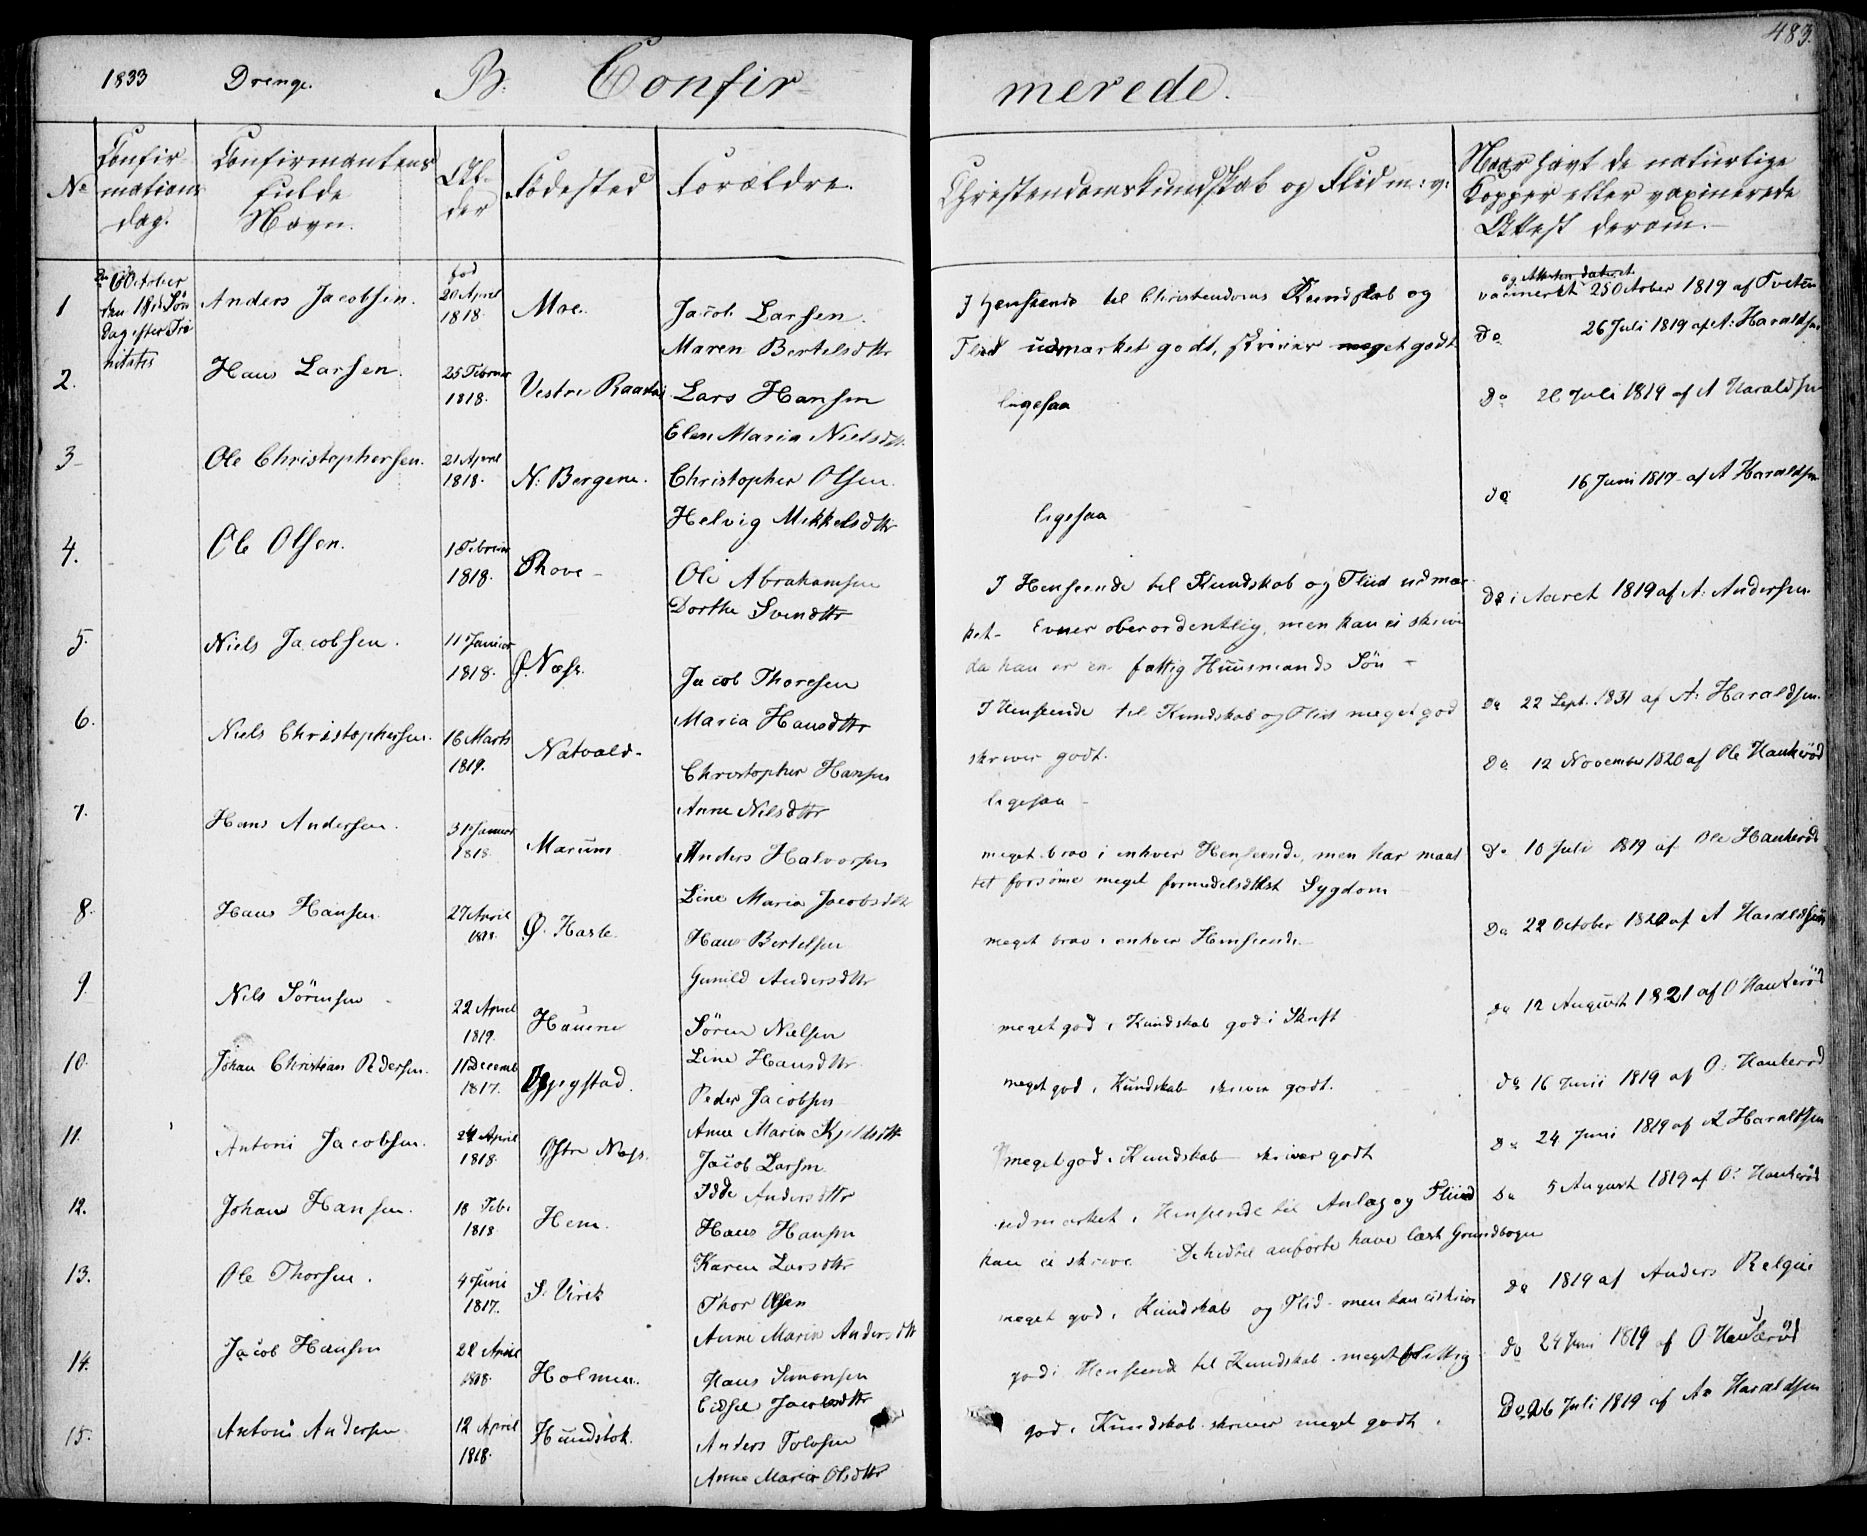 483.
1833 Drenge. B. Confirmerede.
No
Confirmations dag.
Confirmantens fulde Navn.
Alder
Födested
Forældre.
Christendomskundskab og Fliid m: v:
Naar havt de naturlige Kopper eller vaxinerede Attest derom.
6 October
den 18de Søn
dag efter Tri
nitatis
1 Anders Jacobsen. fød 20 April 1818. Moe. Jacob Larsen. Maren Bertelsdttr
I Henseende til Christendoms Kundskab og
Fliid udmærket godt, skriver meget godt
og Attesten dateret
vaccineret 25 October 1819 af Tveten
2. Hans Larsen. 25 Februar 1818. Vestre Raastad Lars Hansen Elen Maria Nielsdttr.
ligesaa
Do 26 Juli 1819 af A: Haraldsen
3 Ole Christophersen. 21 April 1818. N: Bergene. Christopher Olsen. Helvig Mikkelsdttr
ligesaa
Do Juli 1819 af A Haraldsen
4. Ole Olsen. 1 Februar 1818. Ole Abrahamsen Dorthe Svendttr
I Henseende til Kundskab og Fliid udmær
ket. Evner oberordentlig, men kan ei skrive
da han er en fattig Huusmands Sön
do 16 Juni 1817 af A Haraldsen
5. Niels Jacobsen. 11 Januar 1818. Ø. Næss. Jacob Thoresen Maria Hansdttr
I Henseende til Kundskab og Fliid meget god
skriver godt.
do i Aaret 1819 af A: Andersen
6. Niels Christophersen. 16 Marts 1819. Natvald. Christopher Hansen Anne Nilsdttr
ligesaa
Do 22 Sept. 1831 af A: Haraldsen.
7. Hans Andersen. 31 Januar 1818 Marum Anders Halvorsen Line Maria Jacobsdttr
meget brav i enhver Henseende, men har maat
tet forsöme meget formedelst Sygdom
Do 12 November 1820 af Ole Haukeröd
8. Hans Hansen. 27 April 1818. Ø. Hasle. Hans Bertelsen Gunild Andersdttr
meget brav i enhver Henseende
Do 10 Juli 1819 af Ole Haukeröd
9. Nils Sörensen 22 April 1819. Hauene Sören Nielsen Line Hansdttr.
meget god i Kundskab god i Skrift
Do 22 October 1820 af A Haraldsen
10. Johan Christian Pedersen. 11 Decemb 1817. Peder Jacobsen Anne Maria
meget god i Kundskab skriver godt.
Do 12 August 1821 af O Haukeröd
11. Antoni Jacobsen. 24 April 1818. Østre Næss. Jacob Larsen. Idde Andersdttr
meget god i Kundskab skriver godt
do 16 Junii 1819 af O: Haukeröd
12. Johan Hansen. 18 Feb. 1818 Hem. Hans Hansen Karen Larsdttr
udmærket i Henseende til Anlæg og Fliid
kan ei skrive De hidtil anförte have læst Grundbogen
Do 24 Juni 1819 af A Haraldsen
13. Ole Thorsen. 4 Juni 1817. S: Virik Thor Olsen Anne Maria Andersdttr
meget god i Kundskab og Flid men kan ei skrive
Do 5 August 1819 af O: Haukeröd
14. Jacob Hansen 28 April 1818. Holmen. Hans Simonsen Jacobsdttr
god i Henseende til Kundskab meget flittig
Do 1819 af Anders
do 24 Juni 1819 af O Haukeröd
15. Antoni Andersen 12 April 1818. Hundstok Anders Tolvsen Anne Maria Olsdttr
god i Kundskab skriver meget godt.
Do 26 Juli 1819 af A: Haraldsen